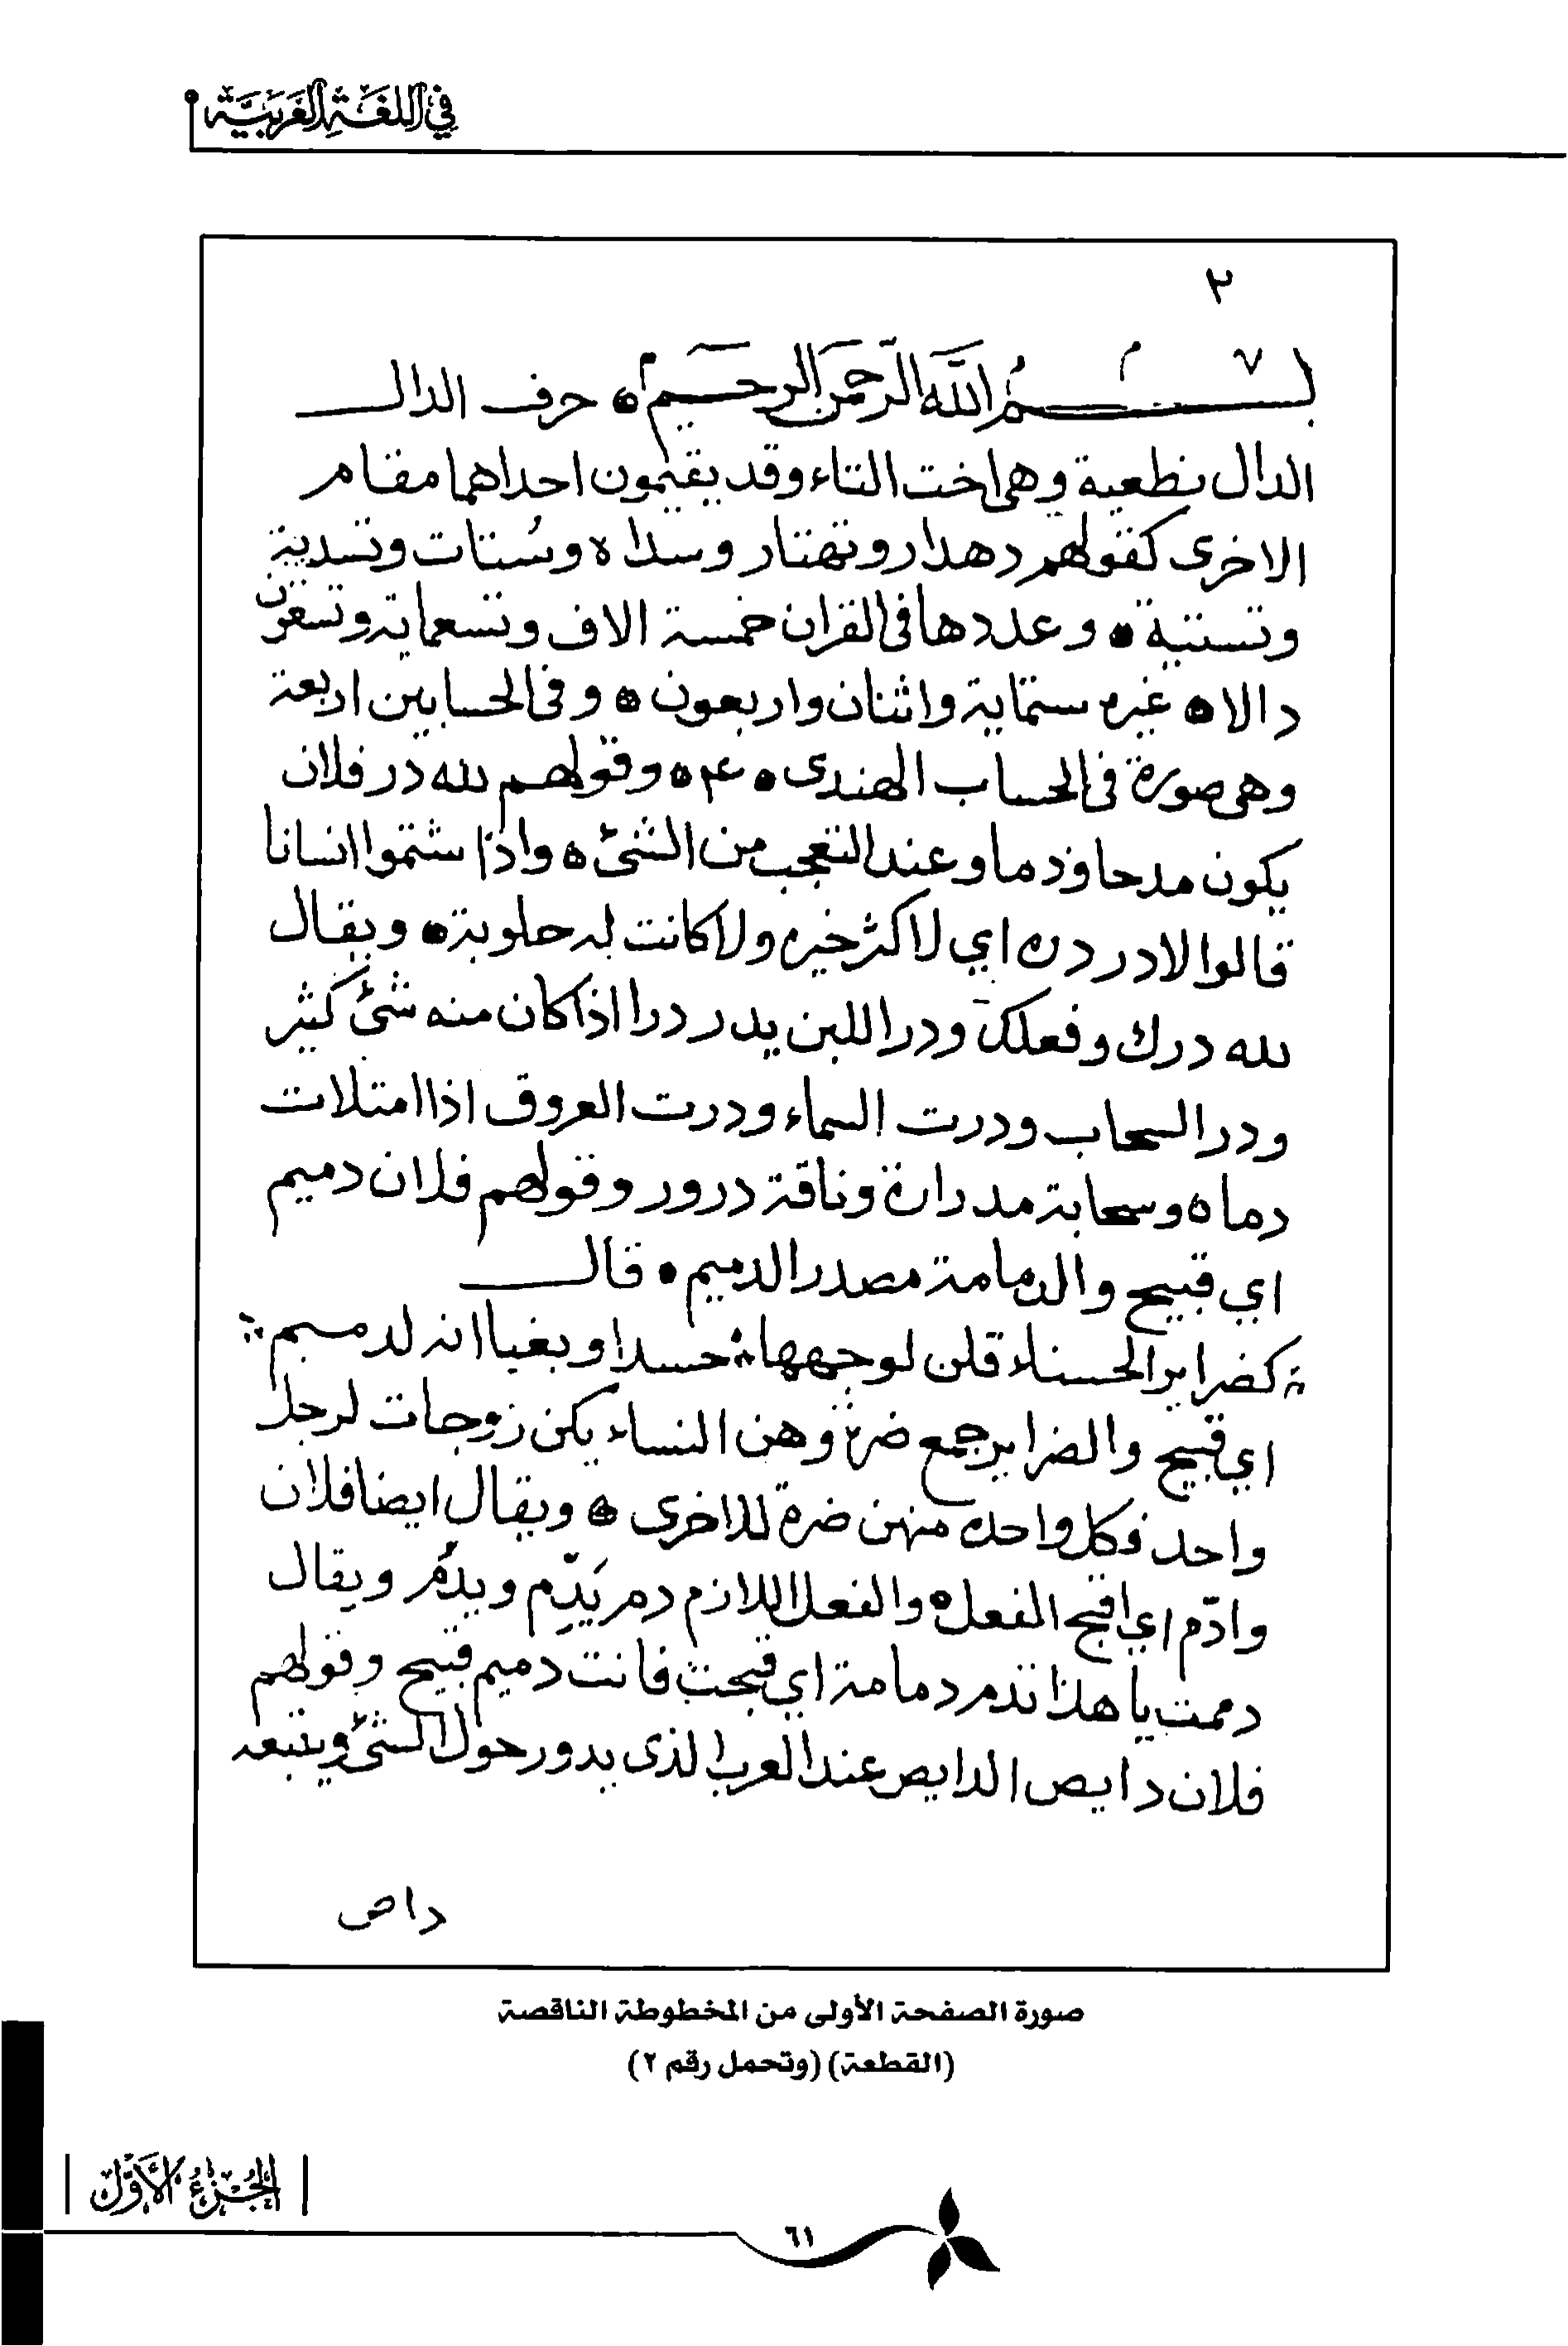 في اللغة العربية
٢
بسم الله الرحمن الرحيم ۞ حرف الدال
الدال نطعية وهي اخت التاء وقد يقيمون احداهما مقام
الاخرى كقولهم دهدار وتهتار وسداه وستات وتسدية
وتستية ۞ وعددها في القران خمسة الاف وتسعماية وتسعون
دالا ۞ غيره ستماية واثنان واربعون ۞ وفي الحسابين اربعة
وهي صورة في الحساب الهندى ۞ ۴ ۞ وقولهم لله در فلان
يكون مدحا وذما وعند التعجب من الشئ ه واذا شتموا انسانا
قالوا لادر دره اي لا كثر خيره ولا كانت له حلوبة ۞ ويقال
لله درك وفعلك ودر اللبن يدر درا اذا كان منه شئ كثير
ودر السحاب ودرت السماء ودرت العروق اذا امتلات
دما ه وسحابة مدرارة وناقة درور وقولهم فلان دميم
اي قبيح والدمامة مصدر الدميم ۞ قال
كضراير الحسناء قلن لوجهها ؞ حسدا وبغيا انه لدميم ؞
اي قبيح والضراير جمع ضرة وهن النساء يكن زوجات لرجل
واحد فكل واحده منهن ضرة للاخرى ۞ ويقال ايضا فلان
وادّم اي اقبح الفعل ه والفعل اللازم دم يَدِّم ويدُم ويقال
دممت يا هذا تدم دمامة اي قبحت فانت دميم قبيح وقولهم
فلان دايص الدايص عند العرب الذى يدور حول الشئ ويتبعه
داص
صورة الصفحة الأولى من المخطوطة الناقصة
(القطعة) (وتحمل رقم ٢)
الجزء الأول
٦١